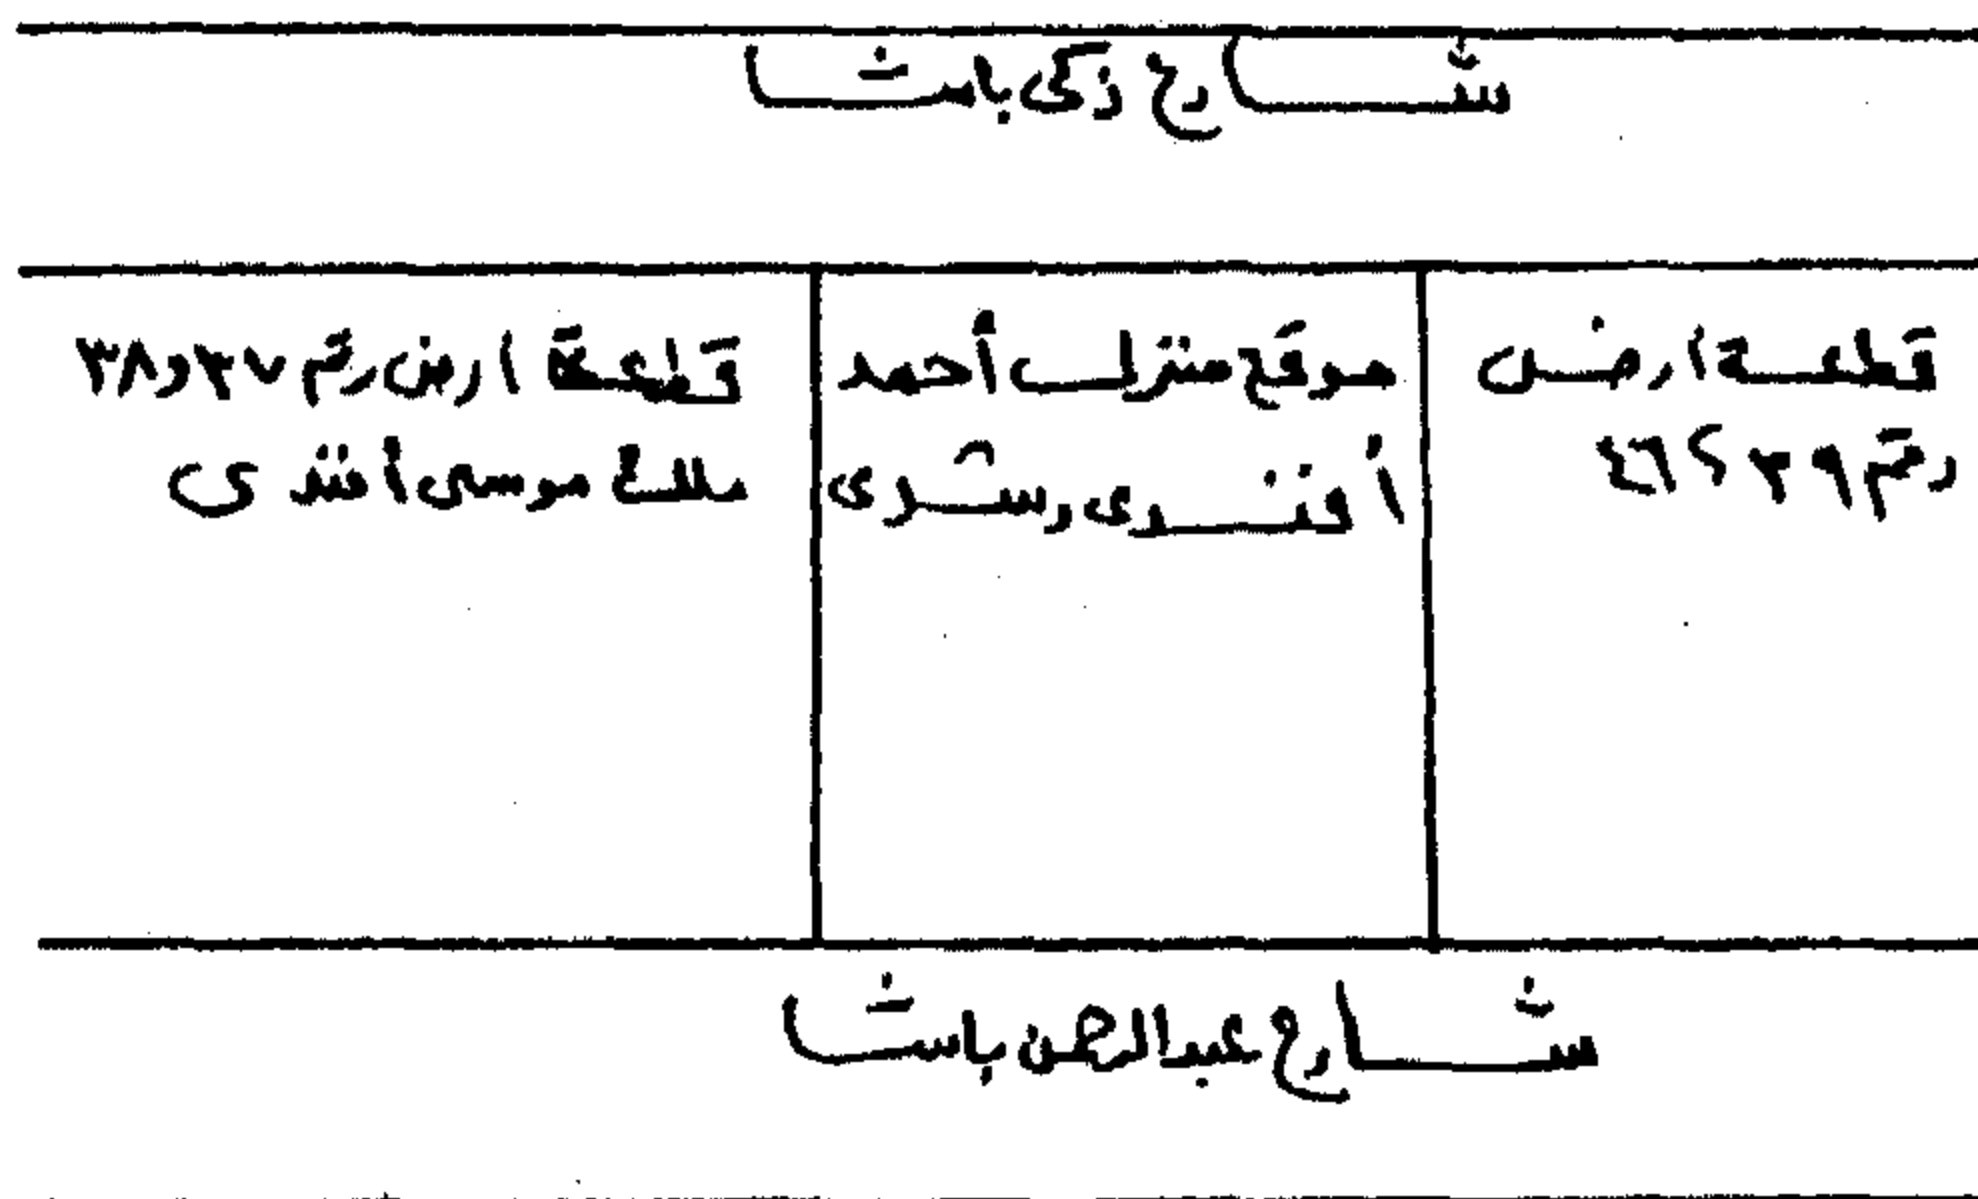 شارع زكى باشا
قطعة ارض
رقم ٣٩ ٤٦
موقع منزل أحمد
أفندى رشدى
قطعة ارض رقم ٣٧ و٣٨
ملك موسى أفندى
شارع عبدالرحمن باشا